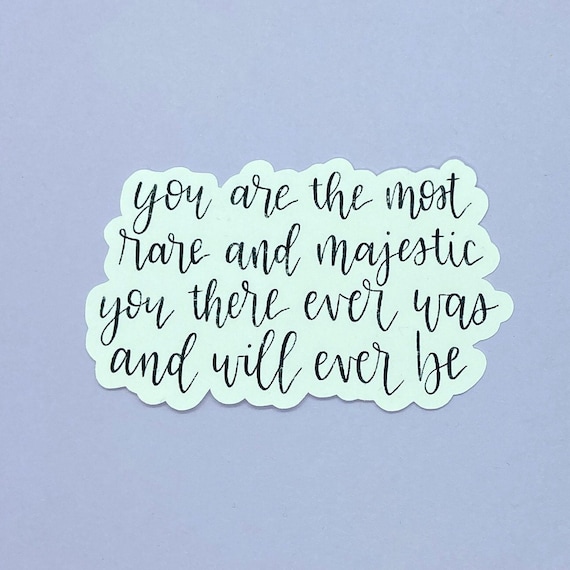 you are the most
rare and majestic
you there ever was
and will ever be